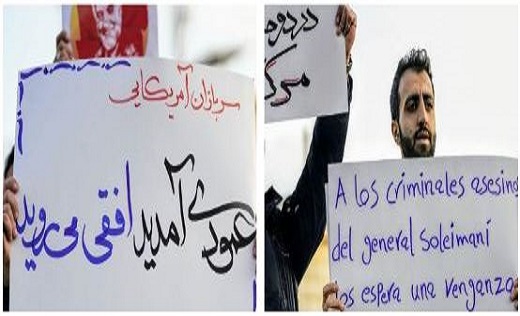 سربازان آمریکایی
عمودی آمدید افقی می‌روید
در دو
مرگ
A los criminales asesinos
del general Soleimaní
los espera una venganza